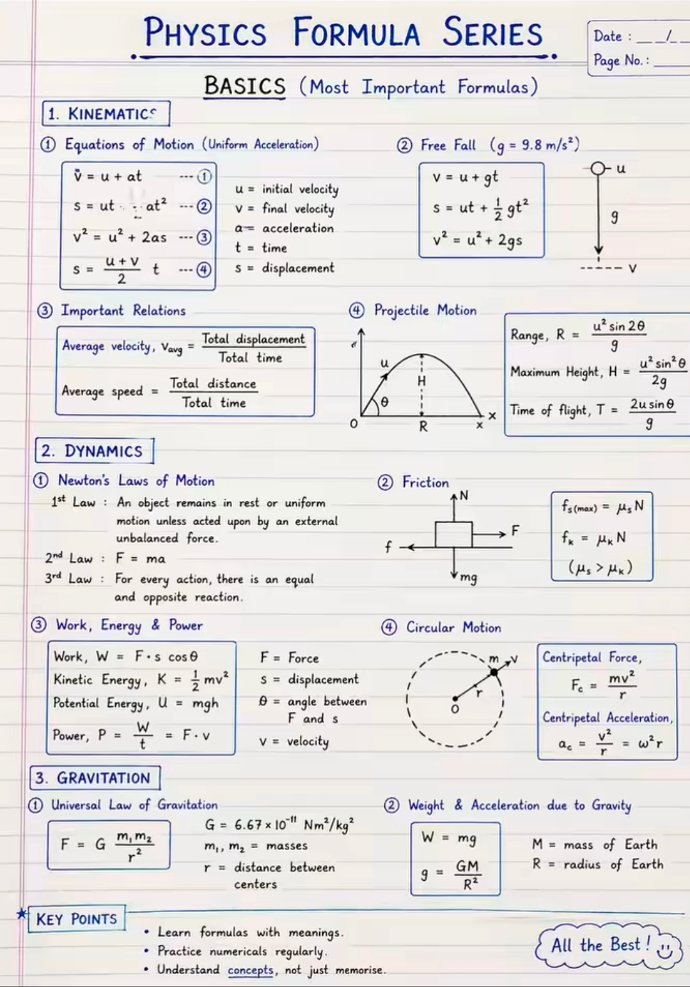 PHYSICS FORMULA SERIES
Date : ___/_
Page No. : ____
BASICS (Most Important Formulas)
1. KINEMATICS
① Equations of Motion (Uniform Acceleration)
v = u + at --- ①
s = ut at² --- ②
v² = u² + 2as --- ③
s = (u + v)/2 t --- ④
u = initial velocity
v = final velocity
a = acceleration
t = time
s = displacement
② Free Fall (g = 9.8 m/s²)
v = u + gt
s = ut + 1/2 gt²
v² = u² + 2gs
u
g
v
③ Important Relations
Average velocity, vavg = Total displacement / Total time
Average speed = Total distance / Total time
④ Projectile Motion
u
H
θ
O
R
x
x
Range, R = u² sin 2θ / g
Maximum Height, H = u² sin²θ / 2g
Time of flight, T = 2u sin θ / g
2. DYNAMICS
① Newton's Laws of Motion
1st Law : An object remains in rest or uniform
motion unless acted upon by an external
unbalanced force.
2nd Law : F = ma
3rd Law : For every action, there is an equal
and opposite reaction.
② Friction
N
F
f
mg
fs(max) = μsN
fk = μkN
(μs > μk)
③ Work, Energy & Power
Work, W = F · s cos θ
Kinetic Energy, K = 1/2 mv²
Potential Energy, U = mgh
Power, P = W/t = F · v
F = Force
s = displacement
θ = angle between
F and s
v = velocity
④ Circular Motion
m
v
r
O
Centripetal Force,
Fc = mv²/r
Centripetal Acceleration,
ac = v²/r = ω²r
3. GRAVITATION
① Universal Law of Gravitation
F = G m₁m₂/r²
G = 6.67 × 10⁻¹¹ Nm²/kg²
m₁, m₂ = masses
r = distance between
centers
② Weight & Acceleration due to Gravity
W = mg
g = GM/R²
M = mass of Earth
R = radius of Earth
KEY POINTS
• Learn formulas with meanings.
• Practice numericals regularly.
• Understand concepts, not just memorise.
All the Best !